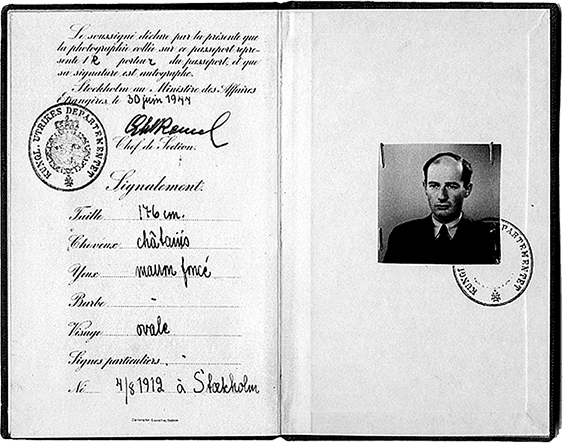 Le soussigné déclare par la présente que
la photographie collée sur ce passeport repré-
sente le porteur du passeport, et que
sa signature est autographe.
Stockholm au Ministère des Affaires
Étrangères le 30 juin 1944
Chef de Section.
KUNGL. UTRIKES DEPARTEMENTET
Signalement.
Taille 176 cm.
Cheveux châtains
Yeux marron foncé
Barbe -
Visage ovale
Signes particuliers -
Né 4/8 1912 à Stockholm
KUNGL
DEPARTEMENTET